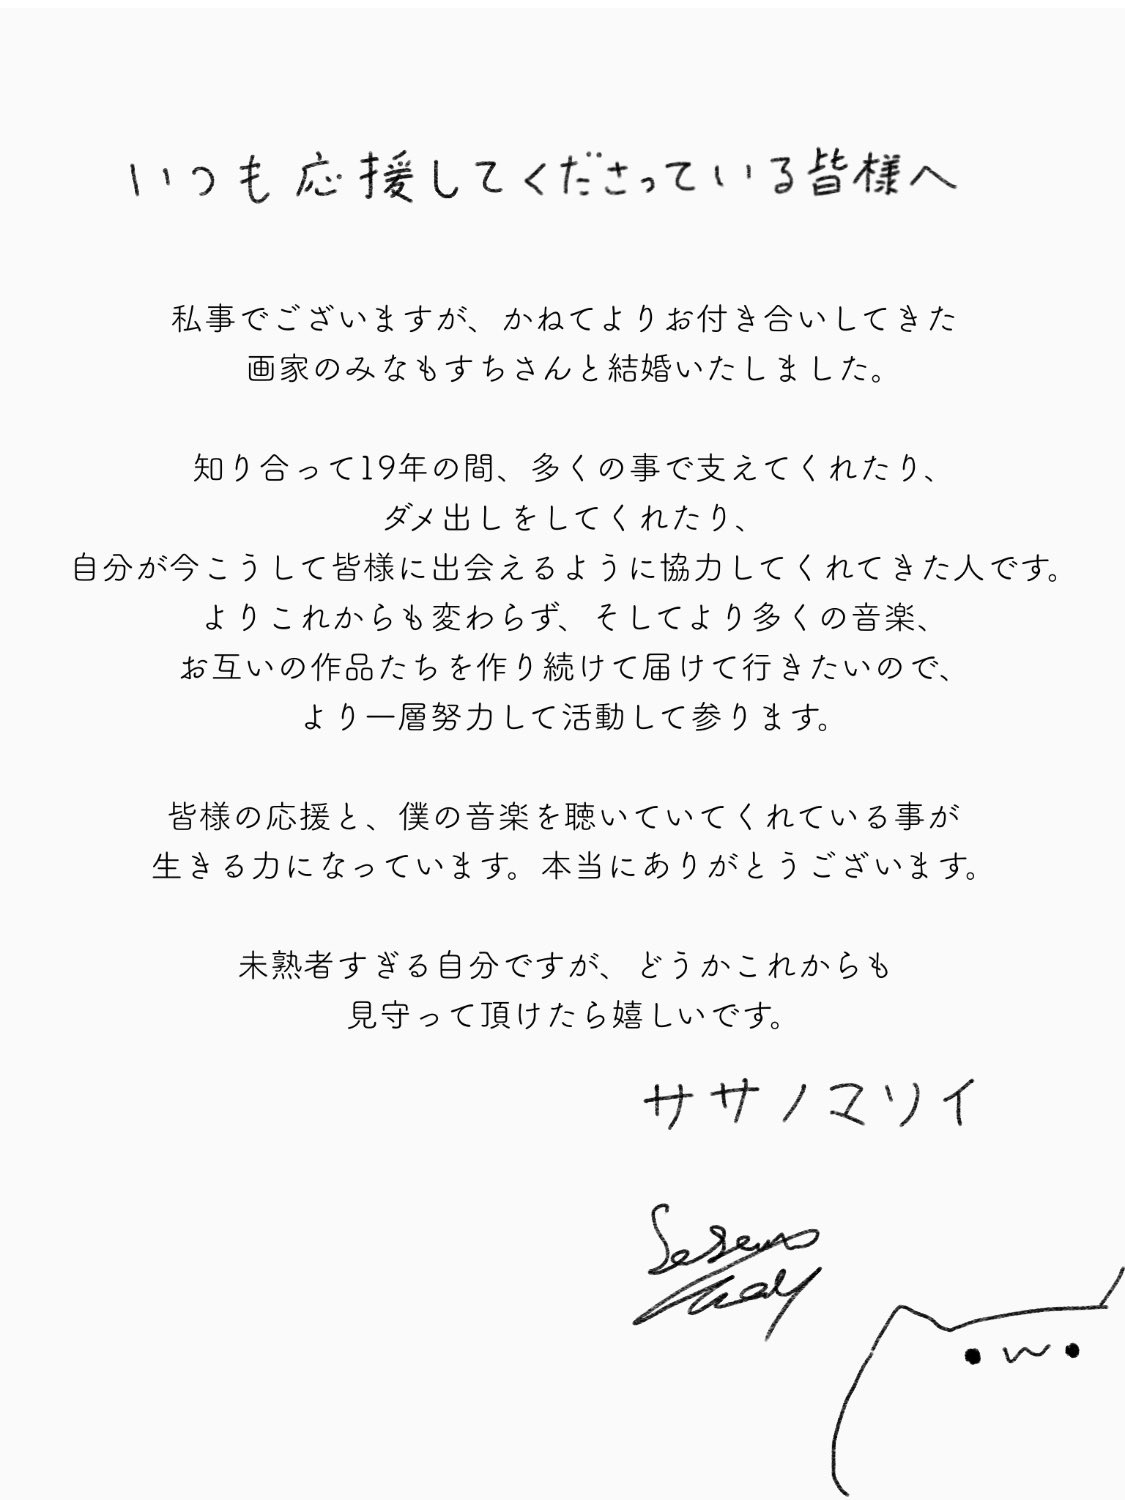 いつも応援してくださっている皆様へ
私事でございますが、かねてよりお付き合いしてきた
画家のみなもすちさんと結婚いたしました。
知り合って19年の間、多くの事で支えてくれたり、
ダメ出しをしてくれたり、
自分が今こうして皆様に出会えるように協力してくれてきた人です。
よりこれからも変わらず、そしてより多くの音楽、
お互いの作品たちを作り続けて届けて行きたいので、
より一層努力して活動して参ります。
皆様の応援と、僕の音楽を聴いていてくれている事が
生きる力になっています。本当にありがとうございます。
未熟者すぎる自分ですが、どうかこれからも
見守って頂けたら嬉しいです。
ササノマリイ